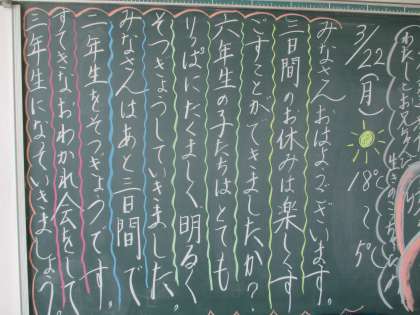 3/22(月) 18℃ ~ 5℃
みなさんおはようございます。
三日間のお休みは楽しくす
ごすことができましたか?
六年生の子たちはとても
りっぱにたくましく明るく
そつぎょうしていきました。
みなさんはあと三日間で
二年生をそつぎょうです。
すてきなおわかれ会をして
三年生になっていきましょう。